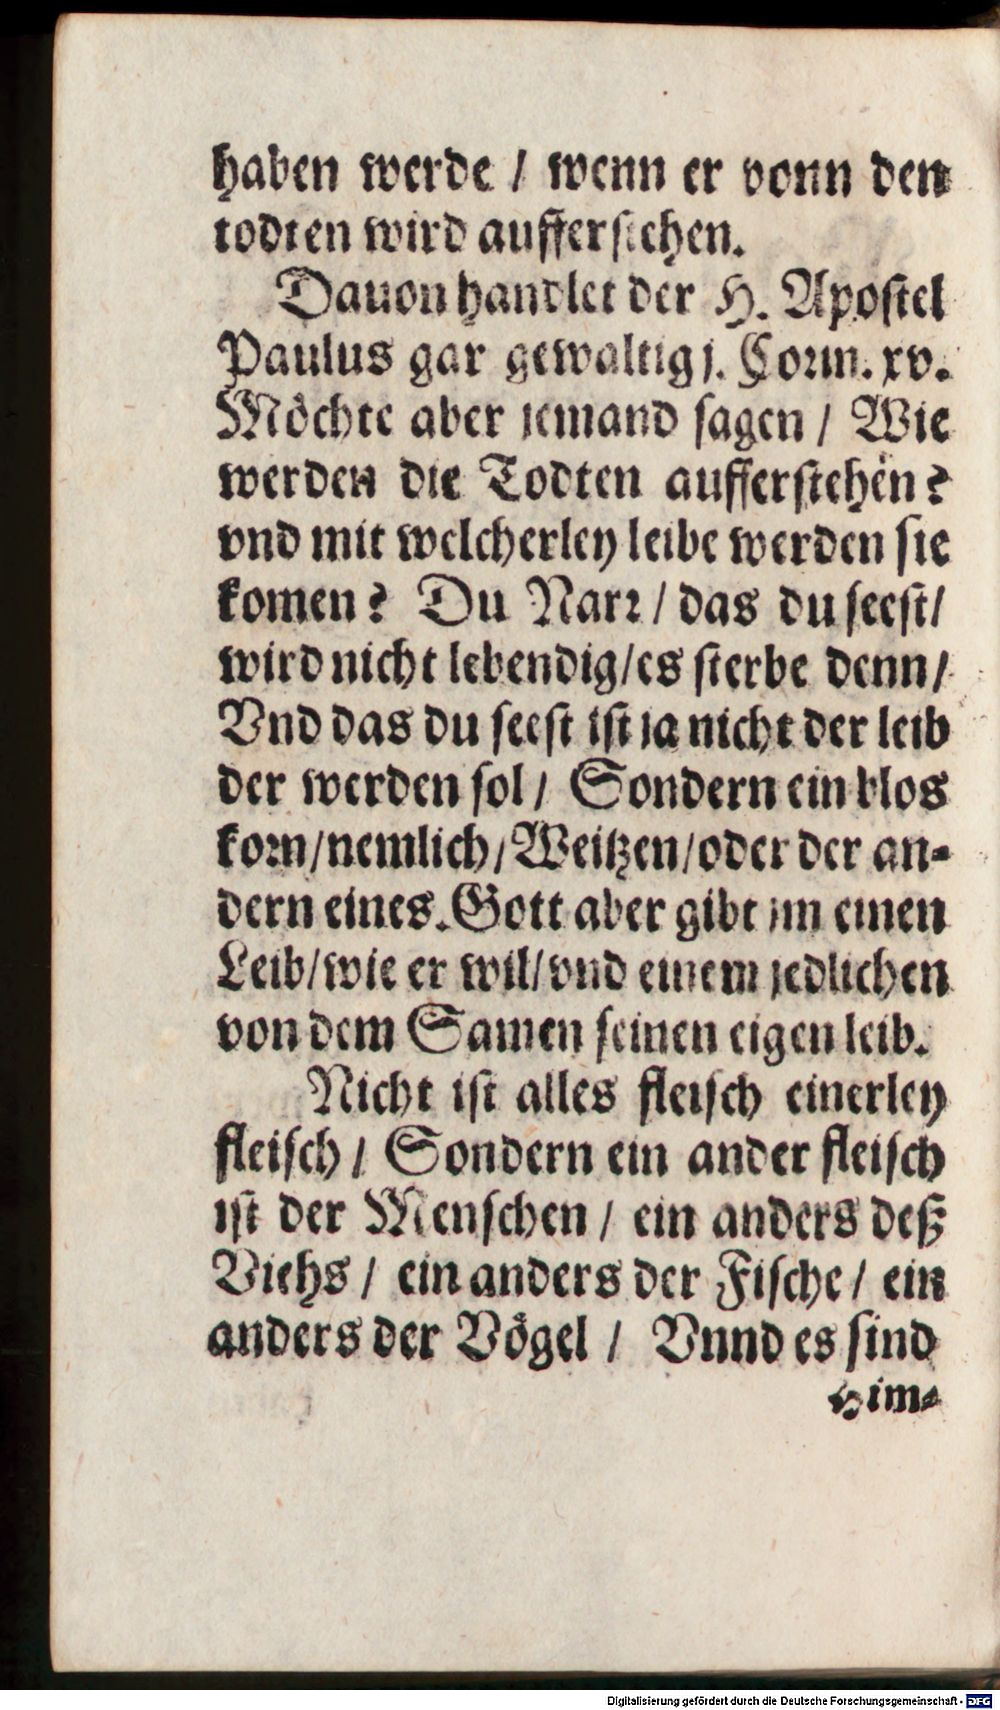 haben werde / wenn er vonn den
todten wird aufferstehen.
Dauon handlet der H. Apostel
Paulus gar gewaltig j. Corin. xv.
Möchte aber jemand sagen / Wie
werden die Todten aufferstehen?
vnd mit welcherley leibe werden sie
komen? Du Narr / das du seest /
wird nicht lebendig / es sterbe denn /
Vnd das du seest ist ja nicht der leib
der werden sol / Sondern ein blos
korn / nemlich / Weitzen / oder der an-
dern eines. Gott aber gibt jm einen
Leib / wie er wil / vnd einem jedlichen
von dem Samen seinen eigen leib.
Nicht ist alles fleisch einerley
fleisch / Sondern ein ander fleisch
ist der Menschen / ein anders deß
Viehs / ein anders der Fische / ein
anders der Vögel / Vnnd es sind
Him-
Digitalisierung gefördert durch die Deutsche Forschungsgemeinschaft - DFG